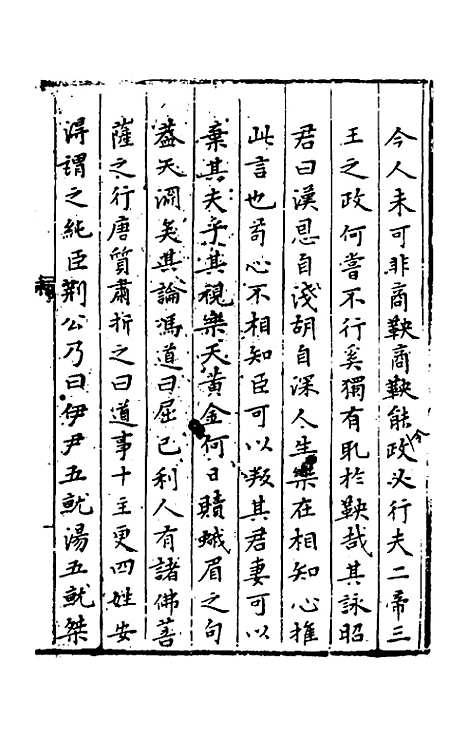 今人未可非商鞅商鞅能政必行夫二帝三
王之政何嘗不行奚獨有取於鞅哉其詠昭
君曰漢恩自淺胡自深人生樂在相知心推
此言也苟心不相知臣可以叛其君妻可以
棄其夫乎其視樂天黃金何日贖蛾眉之句
葢天淵矣其論馮道曰屈己利人有諸佛菩
薩之行唐質肅折之曰道事十主更四姓安
得謂之純臣荆公乃曰伊尹五就湯五就桀